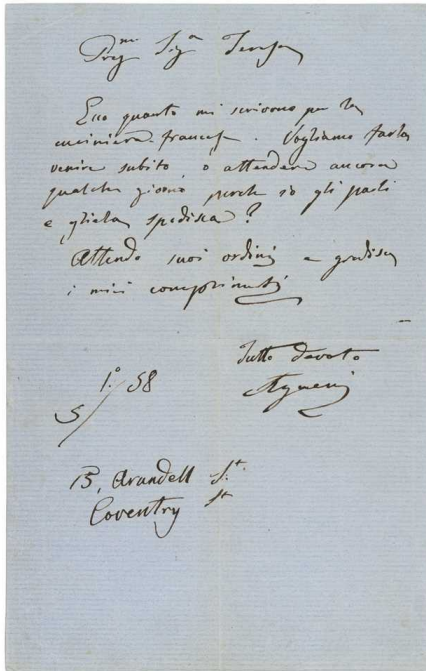 Preg.ma Sig.a Teresa
Ecco quanto mi scrivono per la
cuciniera francese. Vogliamo farla
venire subito, o attendere ancora
qualche giorno perchè io gli parli
e gliela spedisca?
Attendo suoi ordini e gradisca
i miei complimenti
Tutto devoto
5/1.° 58
13, Arundell St.
Coventry St